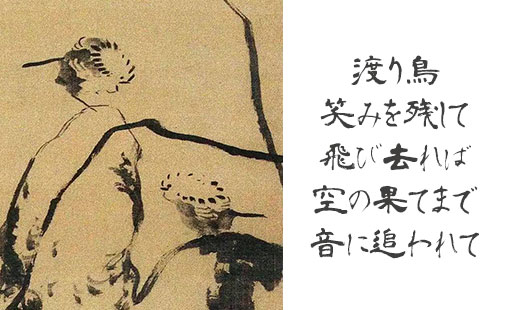 渡り鳥
笑みを残して
飛び去れば
空の果てまで
音に追われて